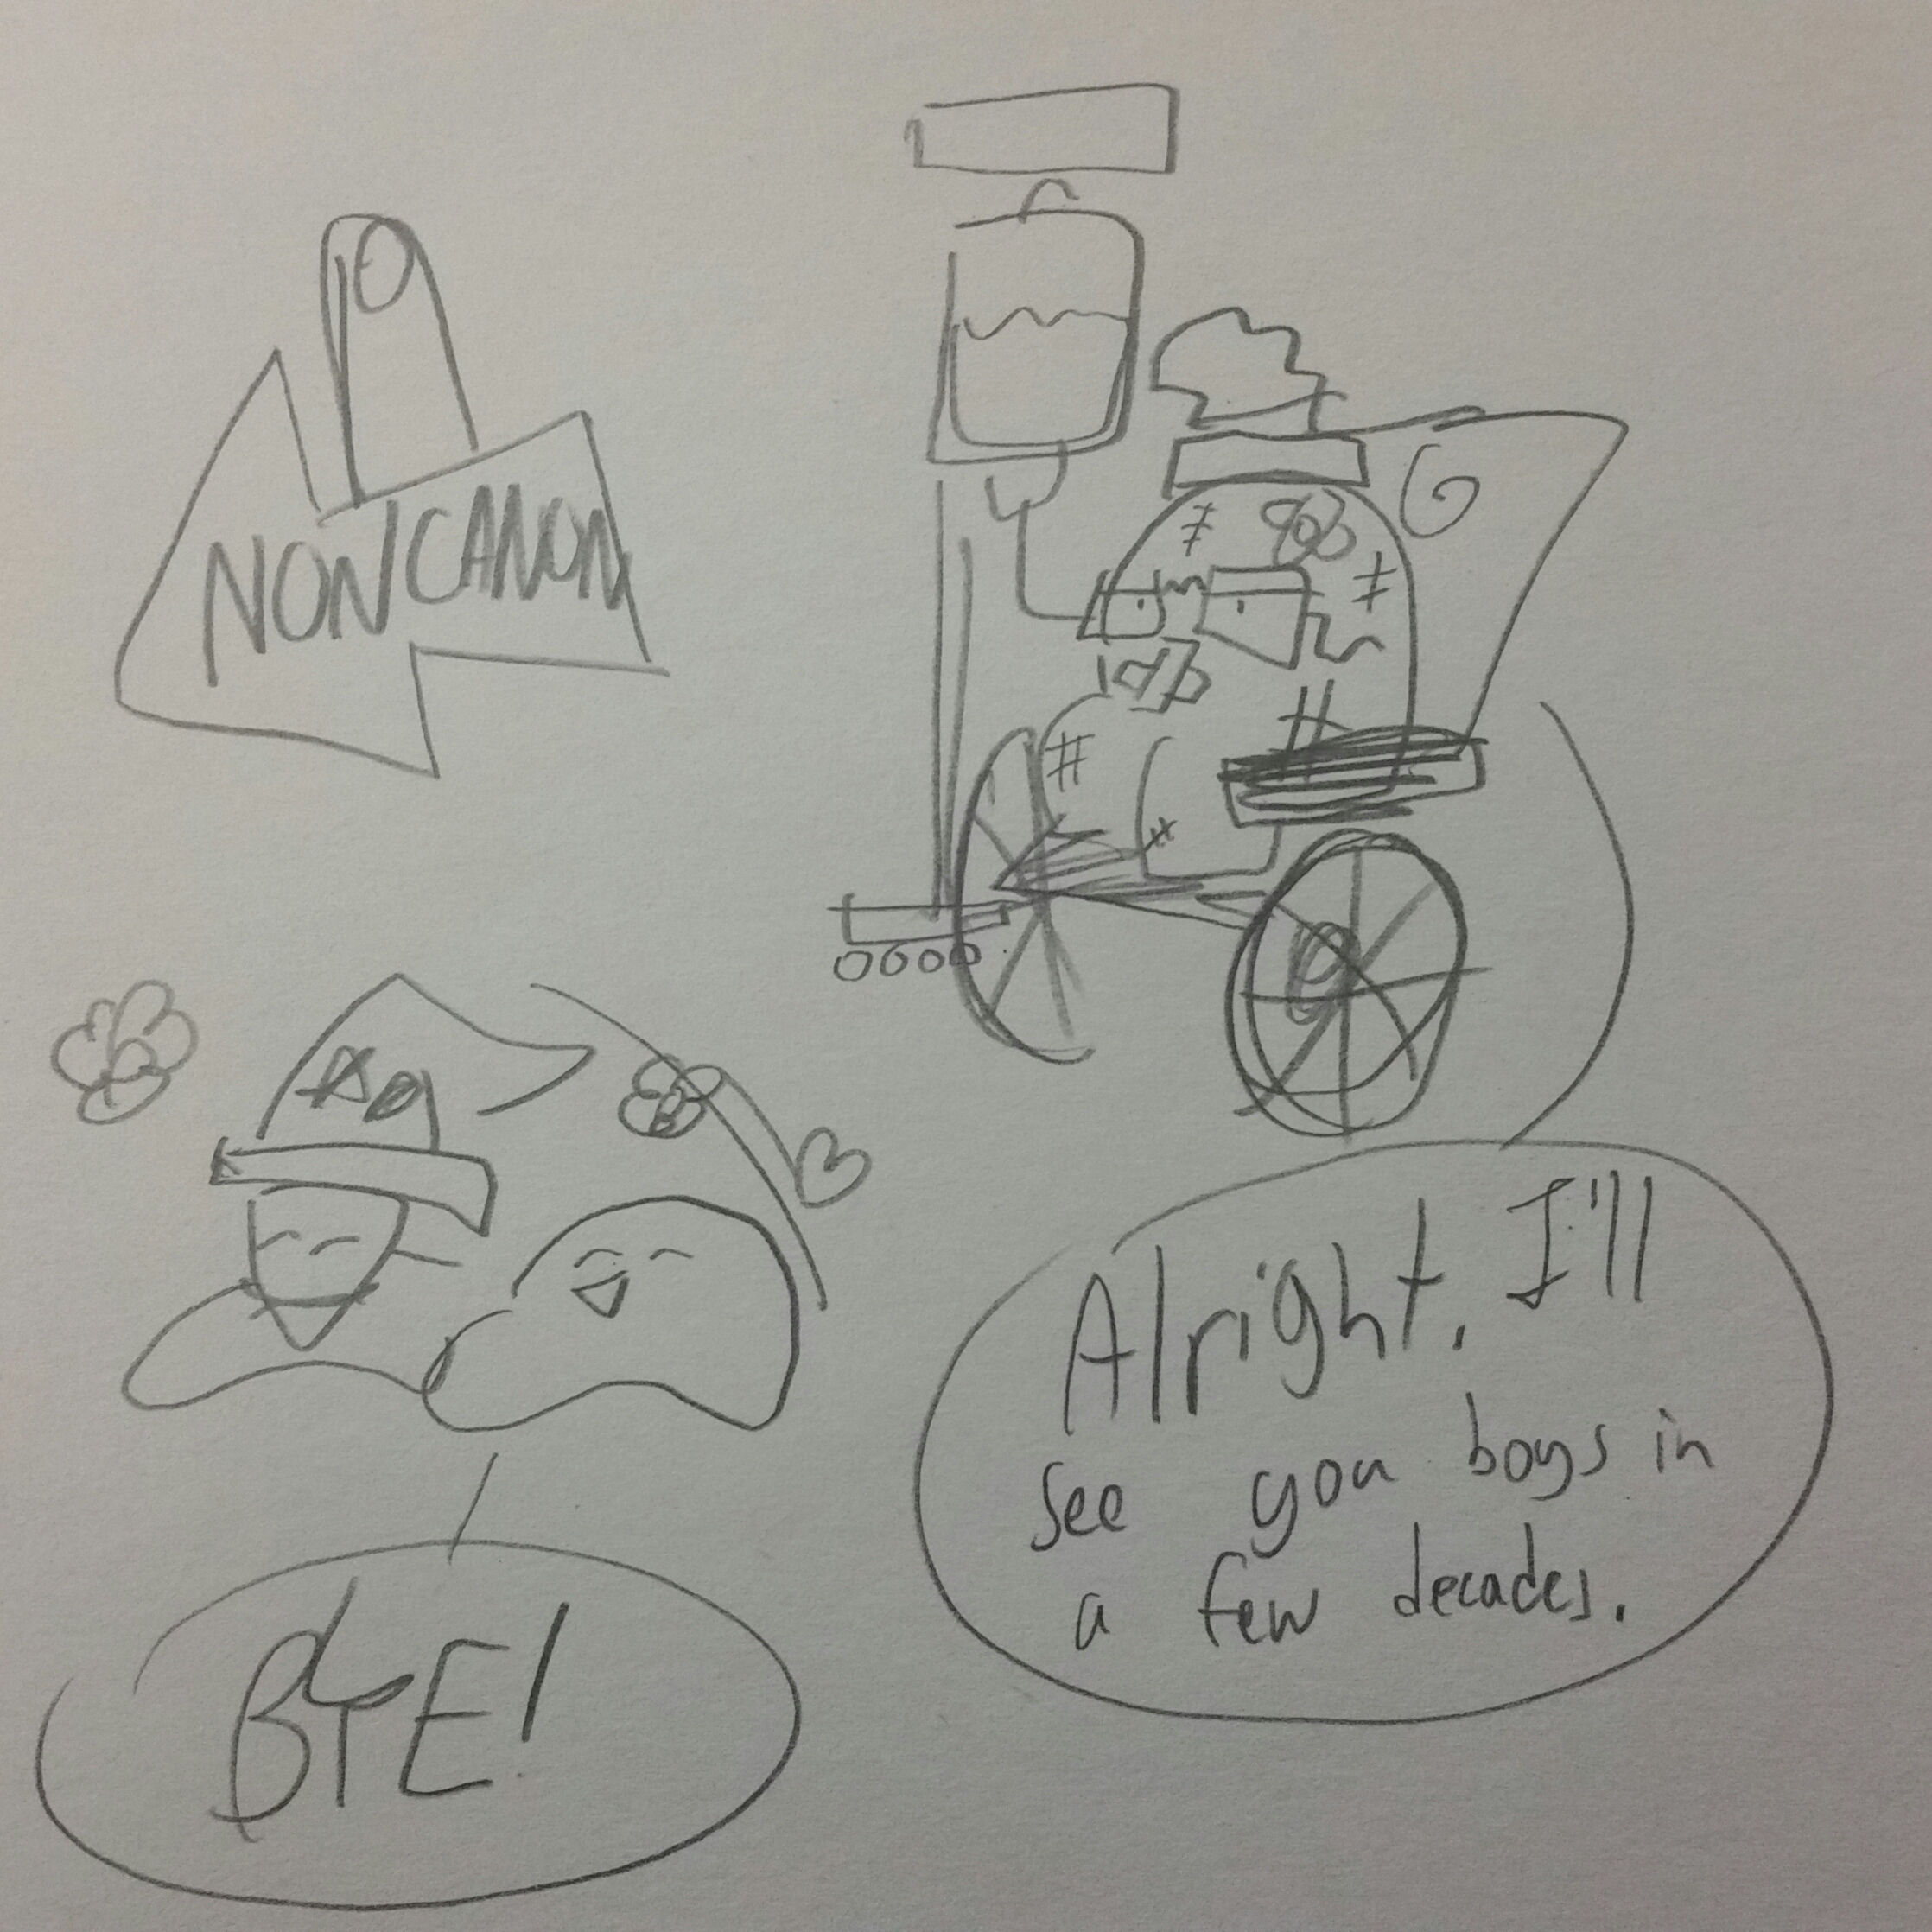 NONCANON
Alright, I'll
see you boys in
a few decades.
BYE!